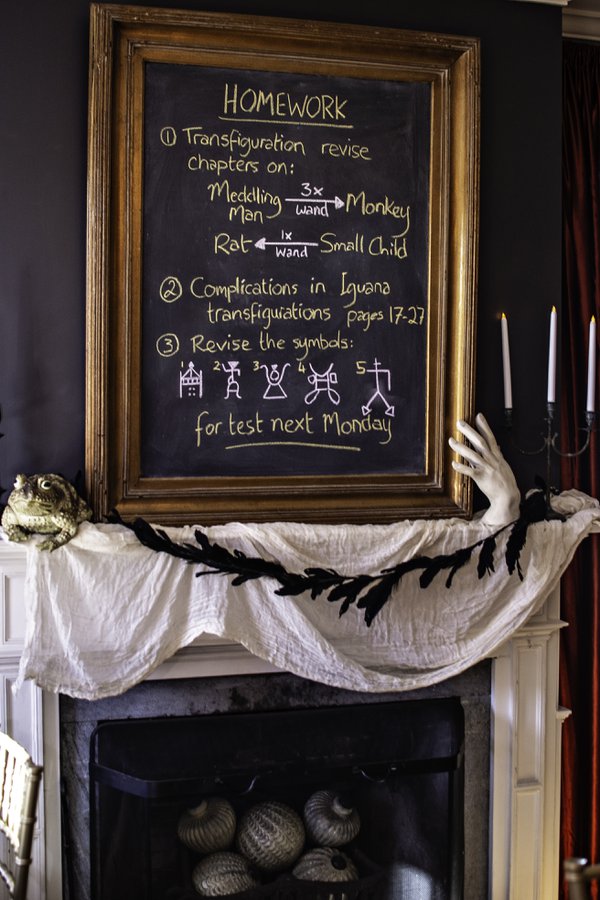 HOMEWORK
① Transfiguration revise
chapters on:
Meddling Man 3x wand Monkey
Rat 1x wand Small Child
② Complications in Iguana
transfigurations pages 17-27
③ Revise the symbols:
1 2 3 4 5
for test next Monday